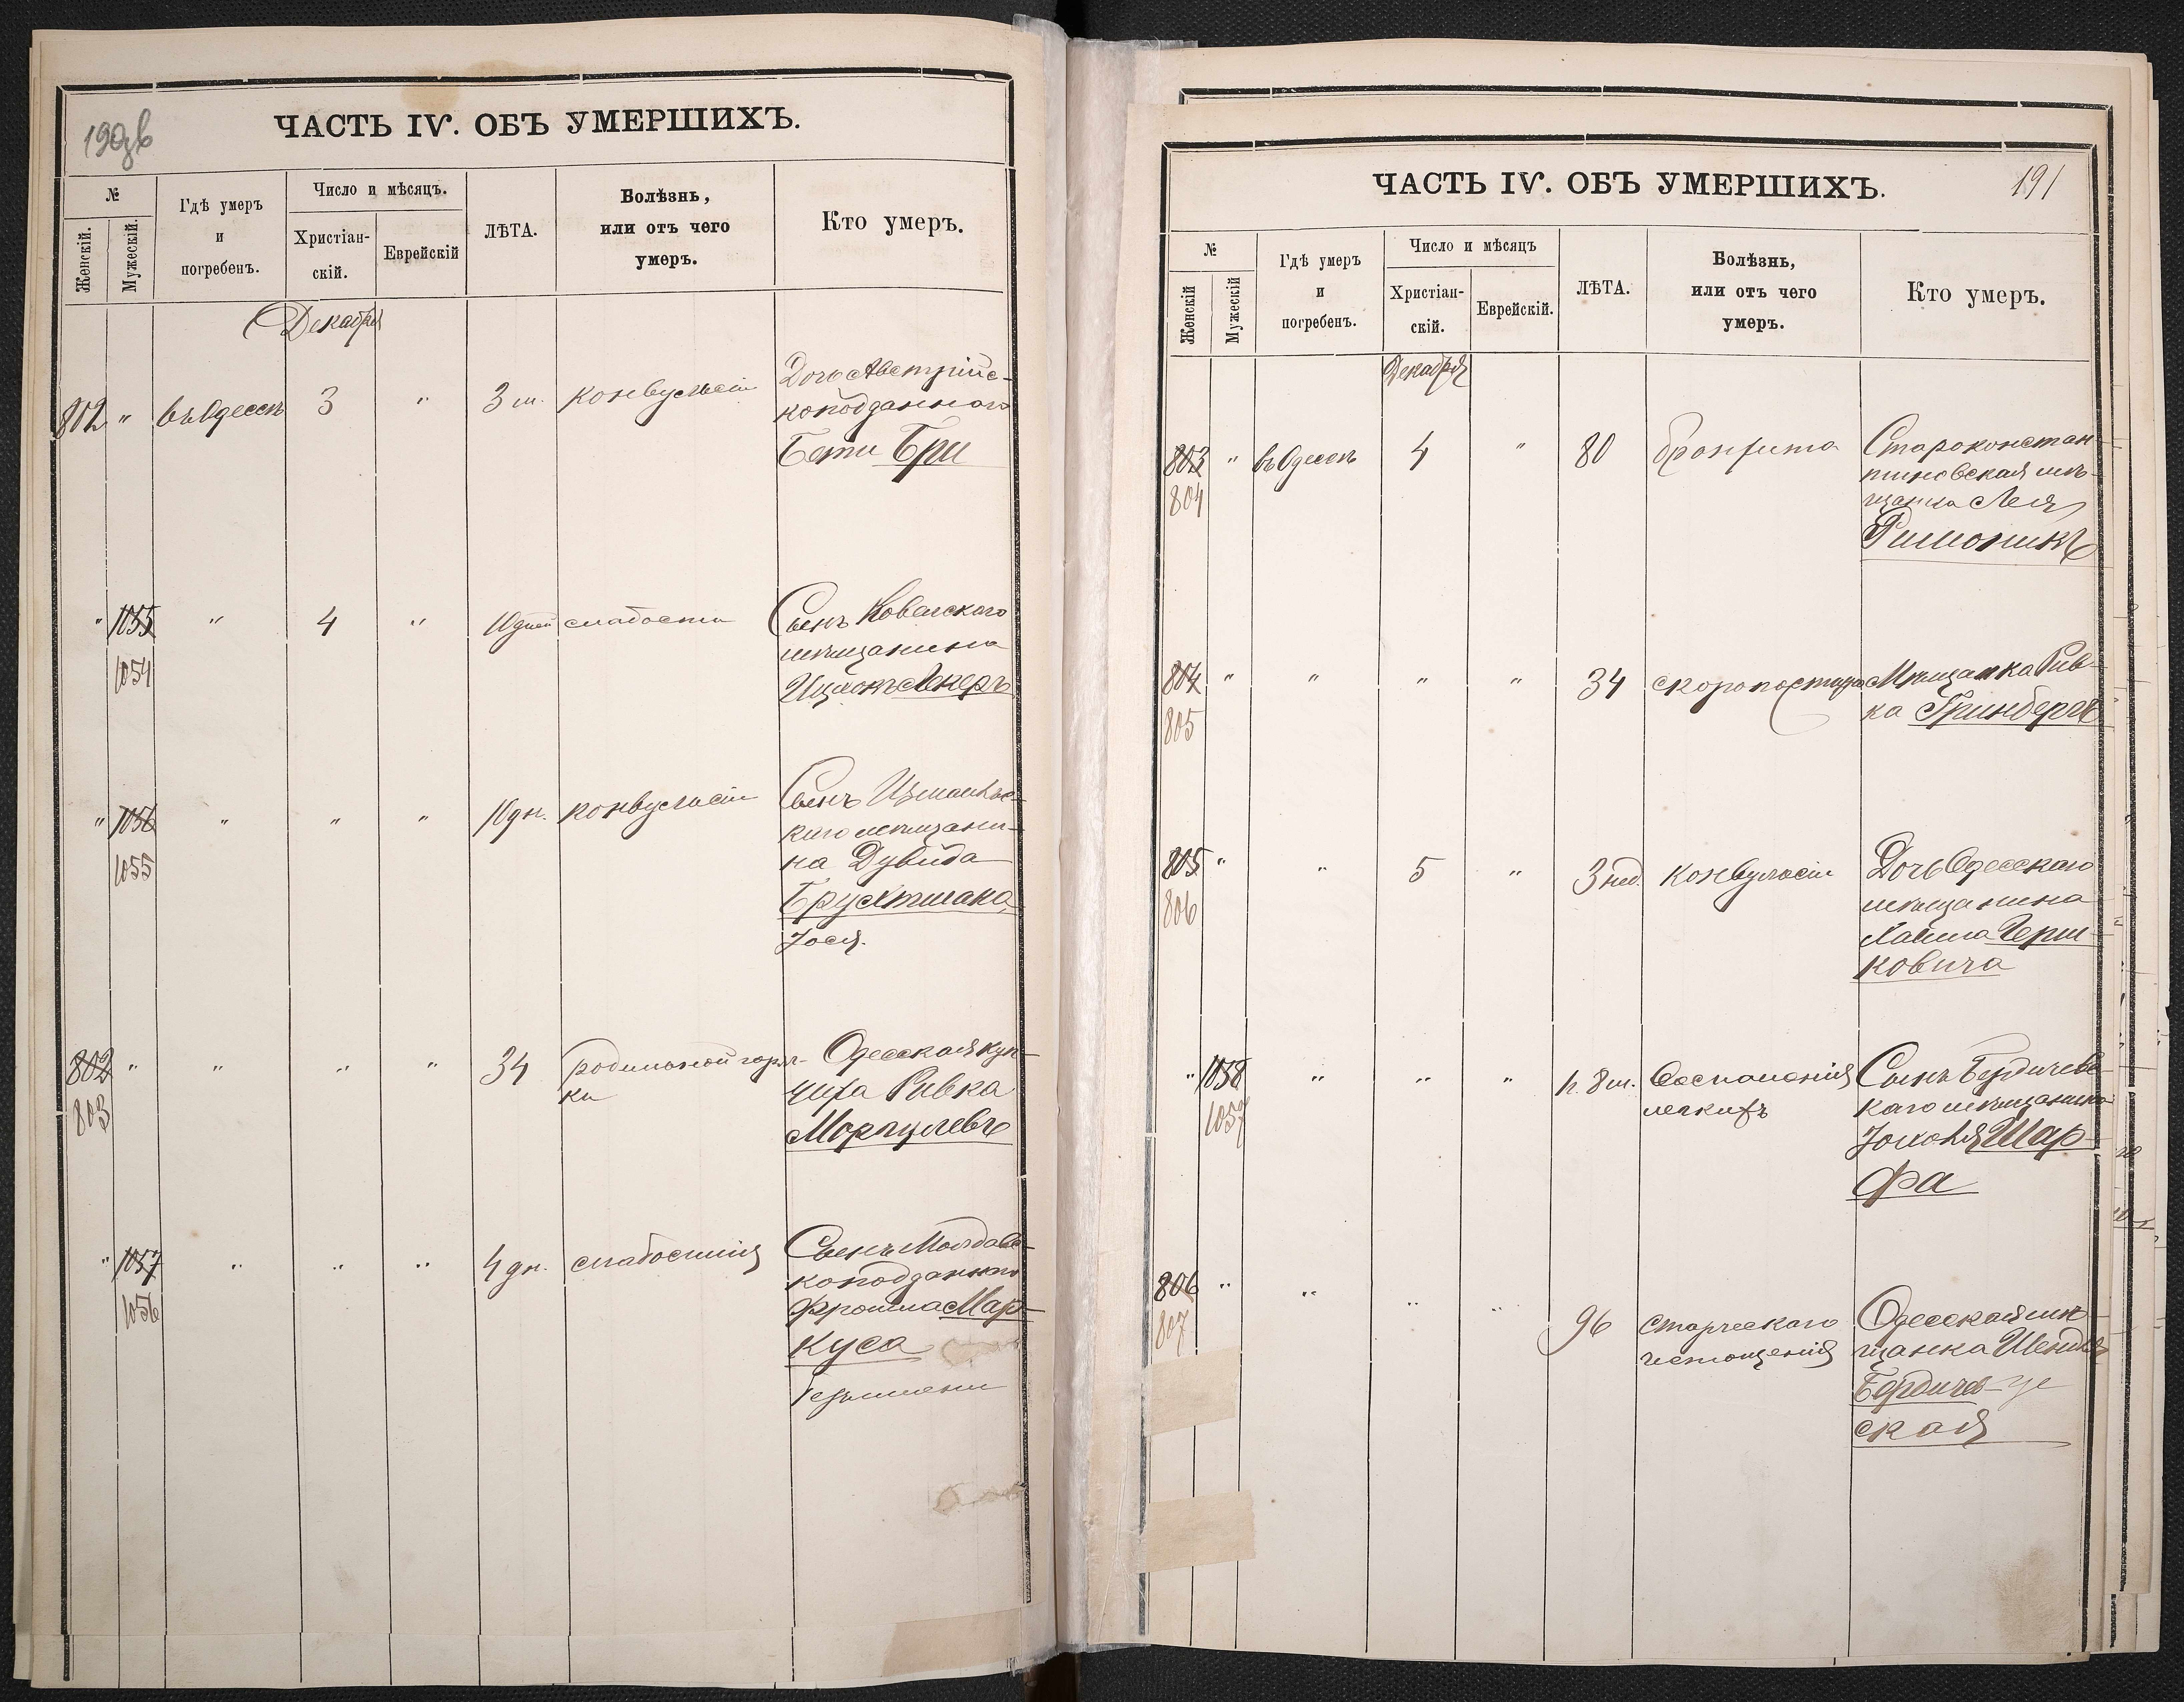 190об
ЧАСТЬ IV. ОБЪ УМЕРШИХЪ.
№
Женскій.
Мужескій.
Гдѣ умеръ
и
погребенъ.
Число и мѣсяцъ.
Христіан-
скій.
Еврейскій
ЛѢТА.
Болѣзнь,
или отъ чего
умеръ.
Кто умеръ.
Декабря
802 " въ Одессѣ 3 " 3 м. конвульсіи
Дочь Австрійс-
коподданного
Бети Бри
" 1055 " 4 " 10 дней слабости
1054
Сынъ Ковельского
мѣщанина
Ицхокъ Лекеръ
" 1056 " " " 10 дн. конвульсіи
1055
Сынъ Измаильс-
каго мѣщани-
на Дувида
Брухтмана
Іося.
802 " " " " 34 родильной горяч-
803
ки
Одесская куп-
чиха Ривка
Моргулевъ
" 1057 " " " 4 дн. слабостиія
1056
Сынъ Молдавс-
коподданного
Фроима Мар-
куса
безъимени
ЧАСТЬ IV. ОБЪ УМЕРШИХЪ.
191
№
Женскій
Мужескій
Гдѣ умеръ
и
погребенъ.
Число и мѣсяцъ
Христіан-
скій.
Еврейскій.
ЛѢТА.
Болѣзнь,
или отъ чего
умеръ.
Кто умеръ.
Декабря
803 " въ Одессѣ 4 " 80 бронхита
804
Староконстан-
тиновская мѣ-
щанка Лея
804 " " " " 34 скоропостижно
805
Мѣщанка Рив-
ка Гринбергъ
805 " " 5 " 3 нед. конвульсіи
806
Дочь Одесского
мѣщанина
Хаима Герш-
ковича
" 1058 " " " 1 г. 8 м. Воспаленія
1057
легкихъ
Сынъ Бердичевс-
каго мѣщанина
Іоселя Шар-
фа
806 " " " " 96 старческаго
807
истощенія
Одесская мѣ-
щанка Шендля
Бердичев-
ская